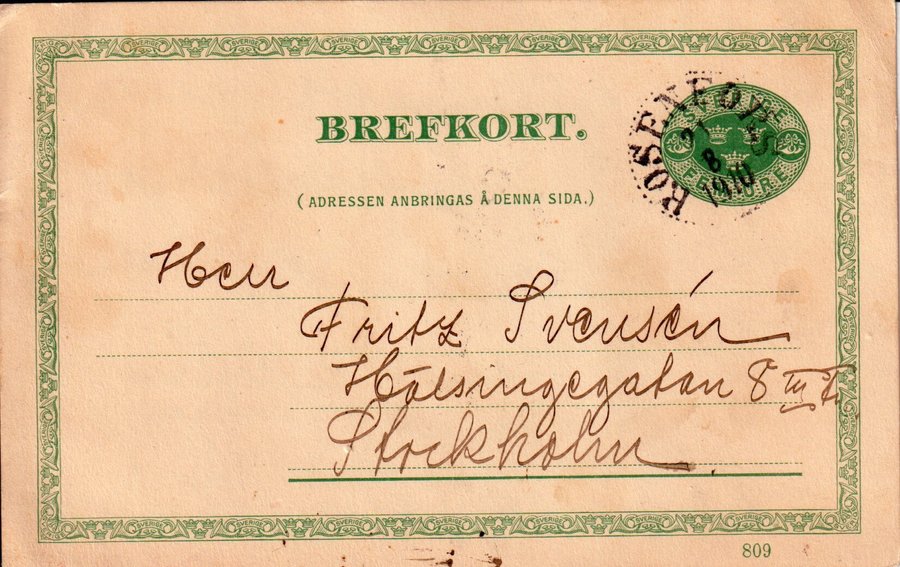 BREFKORT.
ROSENFORS
21
8
1910
(ADRESSEN ANBRINGAS Å DENNA SIDA.)
Herr
Fritz Svensén
Hälsingegatan 8 III
Stockholm
809